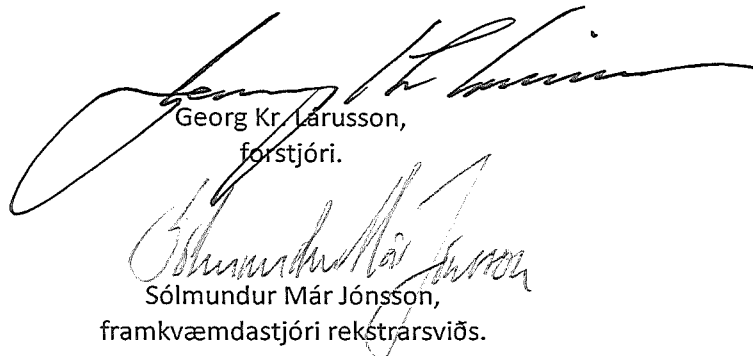 Georg Kr. Lárusson,
forstjóri.
Sólmundur Már Jónsson
Sólmundur Már Jónsson,
framkvæmdastjóri rekstrarsviðs.